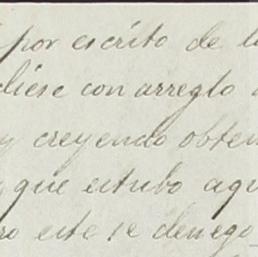 por escrito de l
diese con arreglo
y creyendo obten
que estubo aqu
ro este se denego